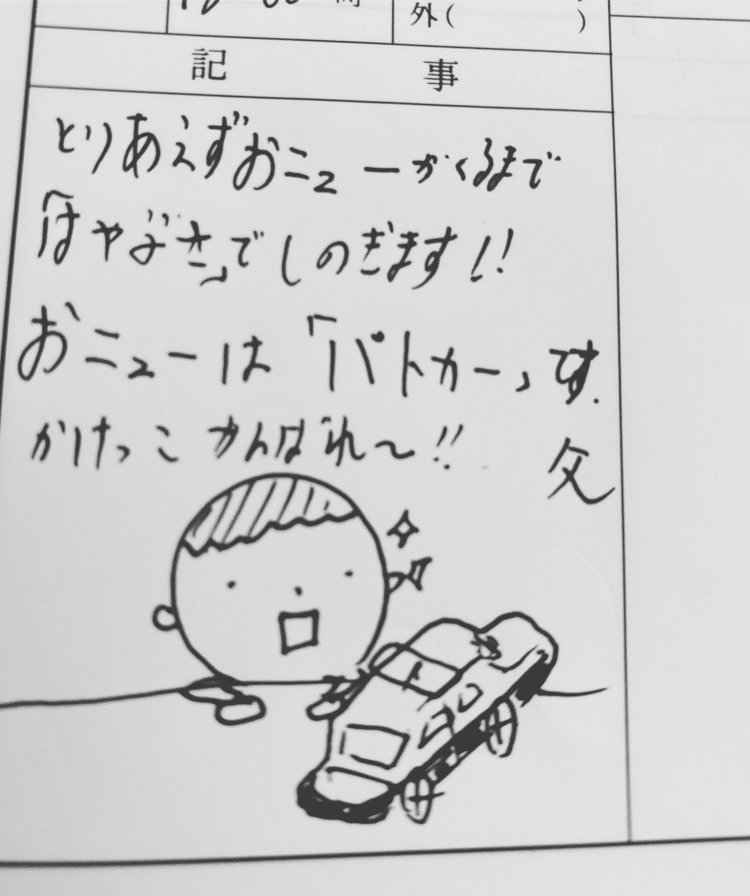 外( )
記 事
とりあえずおニューがくるまで
「はやぶさ」でしのぎます!!
おニューは「パトカー」です.
かけっこ がんばれ〜!! 父